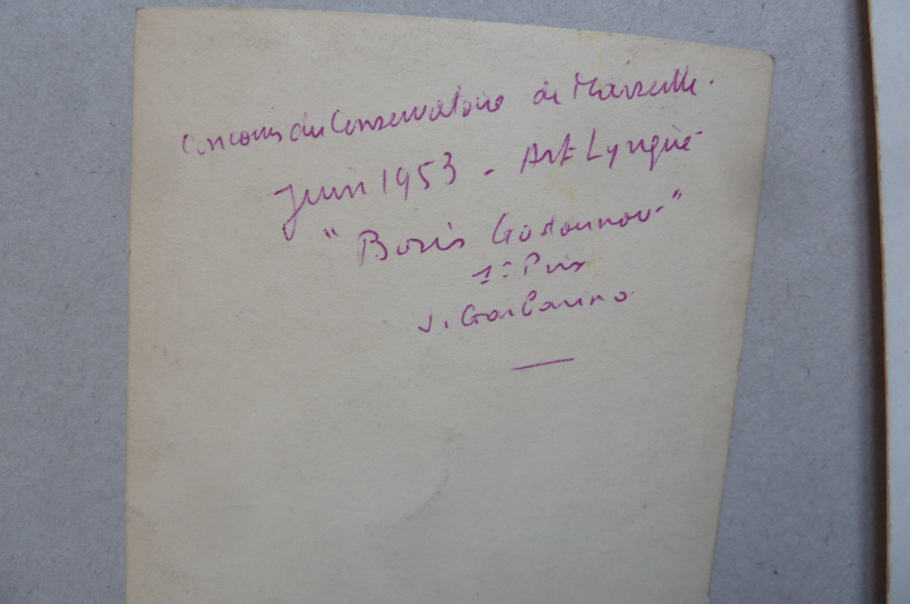 Concours du Conservatoire de Marseille.
Juin 1953 - Art Lyrique
"Boris Godounov"
1er Prix
J. Garbarino